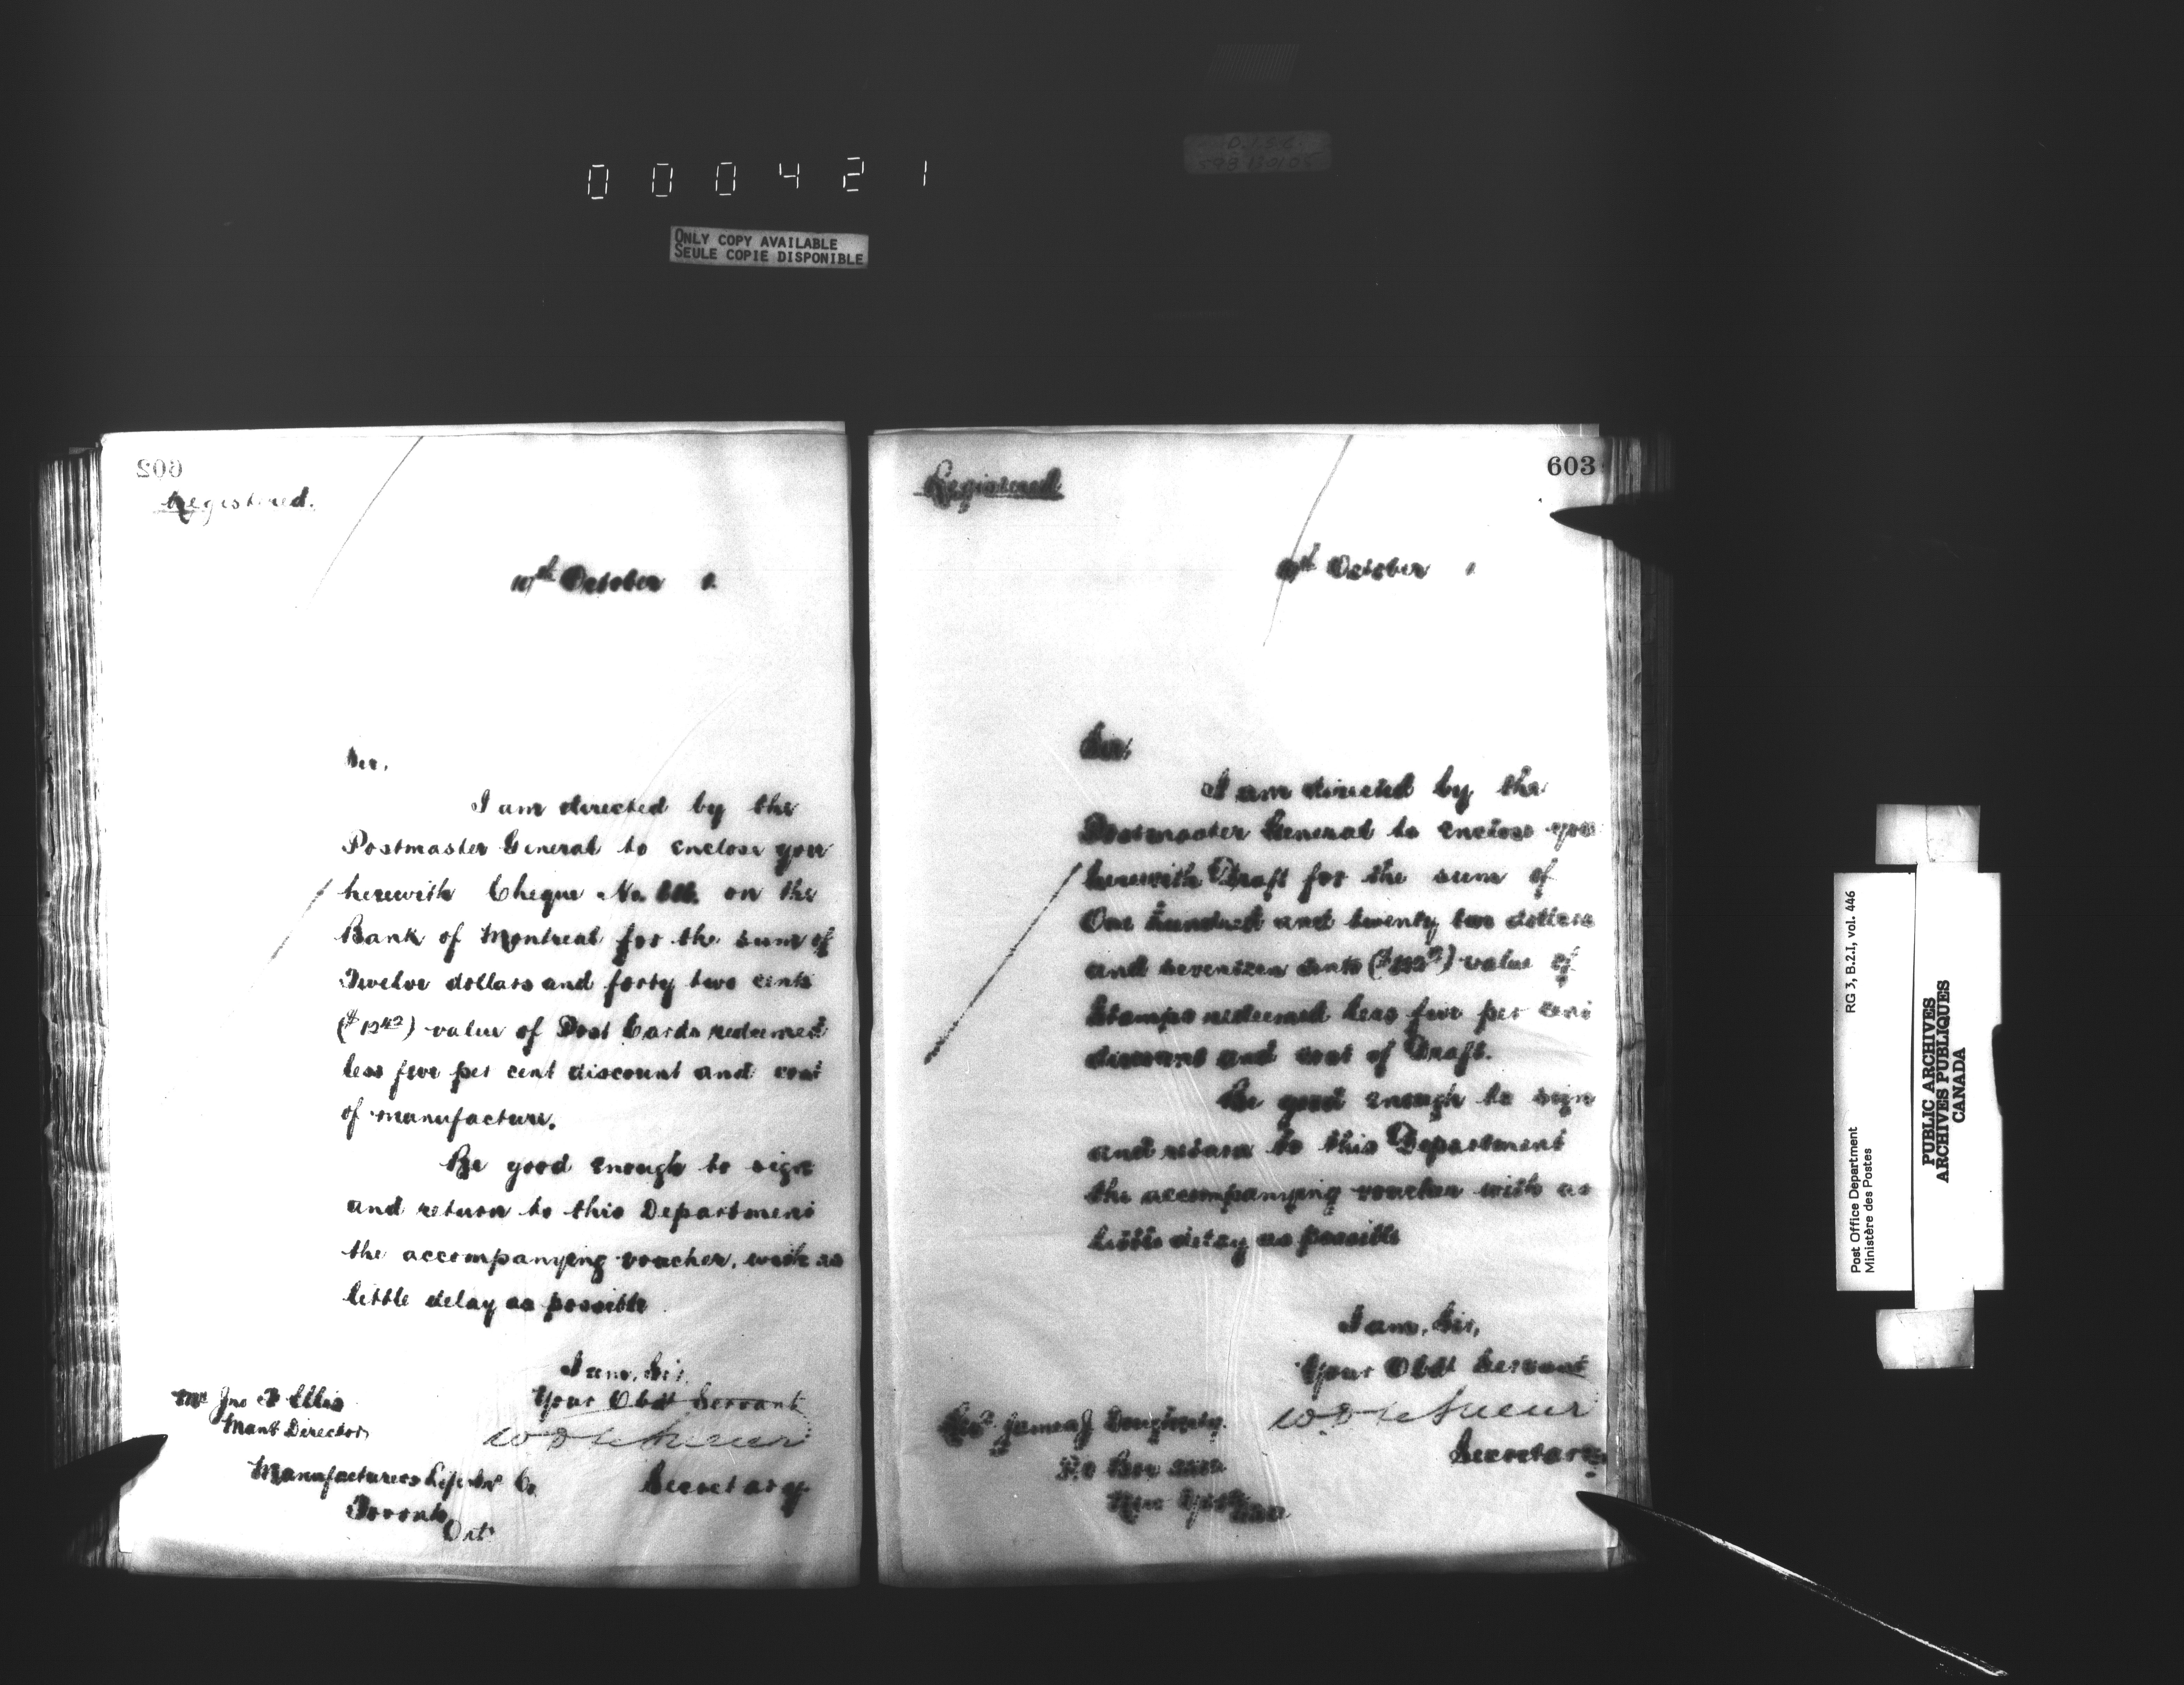 000421
ONLY COPY AVAILABLE
SEULE COPIE DISPONIBLE
602
Registered.
10th October
Sir,
I am directed by the
Postmaster General to enclose you
herewith Cheque No. on the
Bank of Montreal for the sum of
Twelve dollars and forty two cents
($12.42) value of Post Cards redeemed
less five per cent discount and cost
of manufacture.
Be good enough to sign
and return to this Department
the accompanying voucher, with as
little delay as possible.
I am, Sir,
Your Obdt Servant
W D LeSueur
Secretary
Mr Jno F Ellis
Mang Director
Manufacturers Life Ins Co
Toronto
Ont
603
Registered
October
Sir,
I am directed by the
Postmaster General to enclose you
herewith Draft for the sum of
One hundred and twenty two dollars
and seventeen cents ($122.17) value of
Stamps redeemed less five per cent
discount and cost of Draft.
Be good enough to sign
and return to this Department
the accompanying voucher with as
little delay as possible
I am, Sir,
Your Obdt Servant
W D LeSueur
Secretary
James J
P.O Box
New York
Post Office Department
Ministère des Postes
RG 3, B.2.I, vol. 446
PUBLIC ARCHIVES
ARCHIVES PUBLIQUES
CANADA